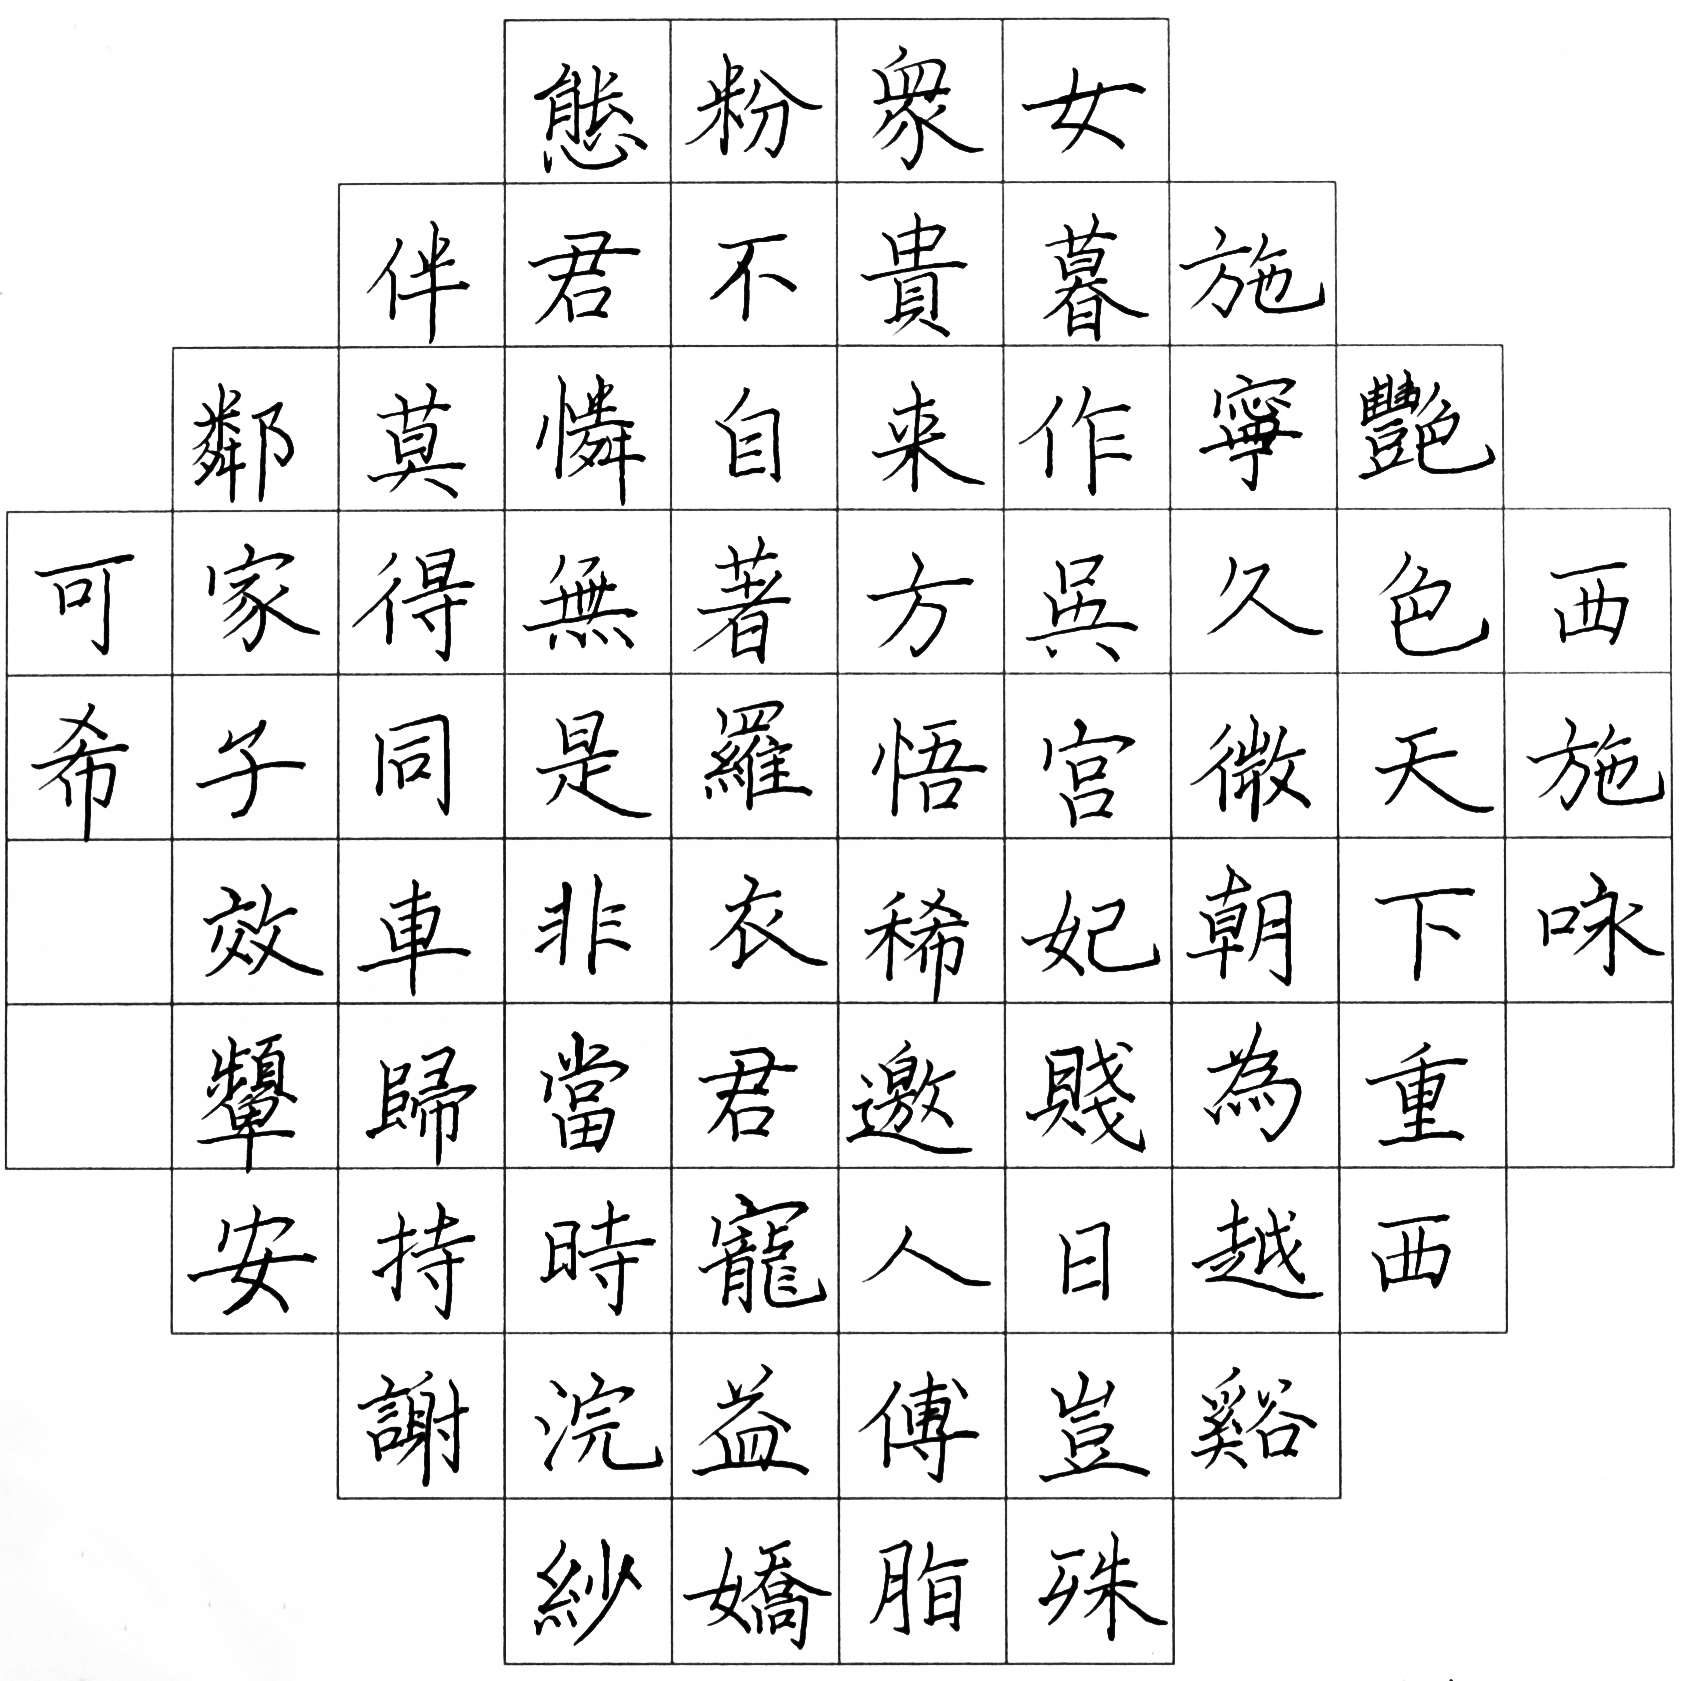 西施咏
艷色天下重西
施寧久微朝為越谿
女暮作吳宮妃賤日豈殊
衆貴来方悟稀邀人傅脂
粉不自著羅衣君寵益嬌
態君憐無是非當時浣紗
伴莫得同車歸持謝
鄰家子效顰安
可希